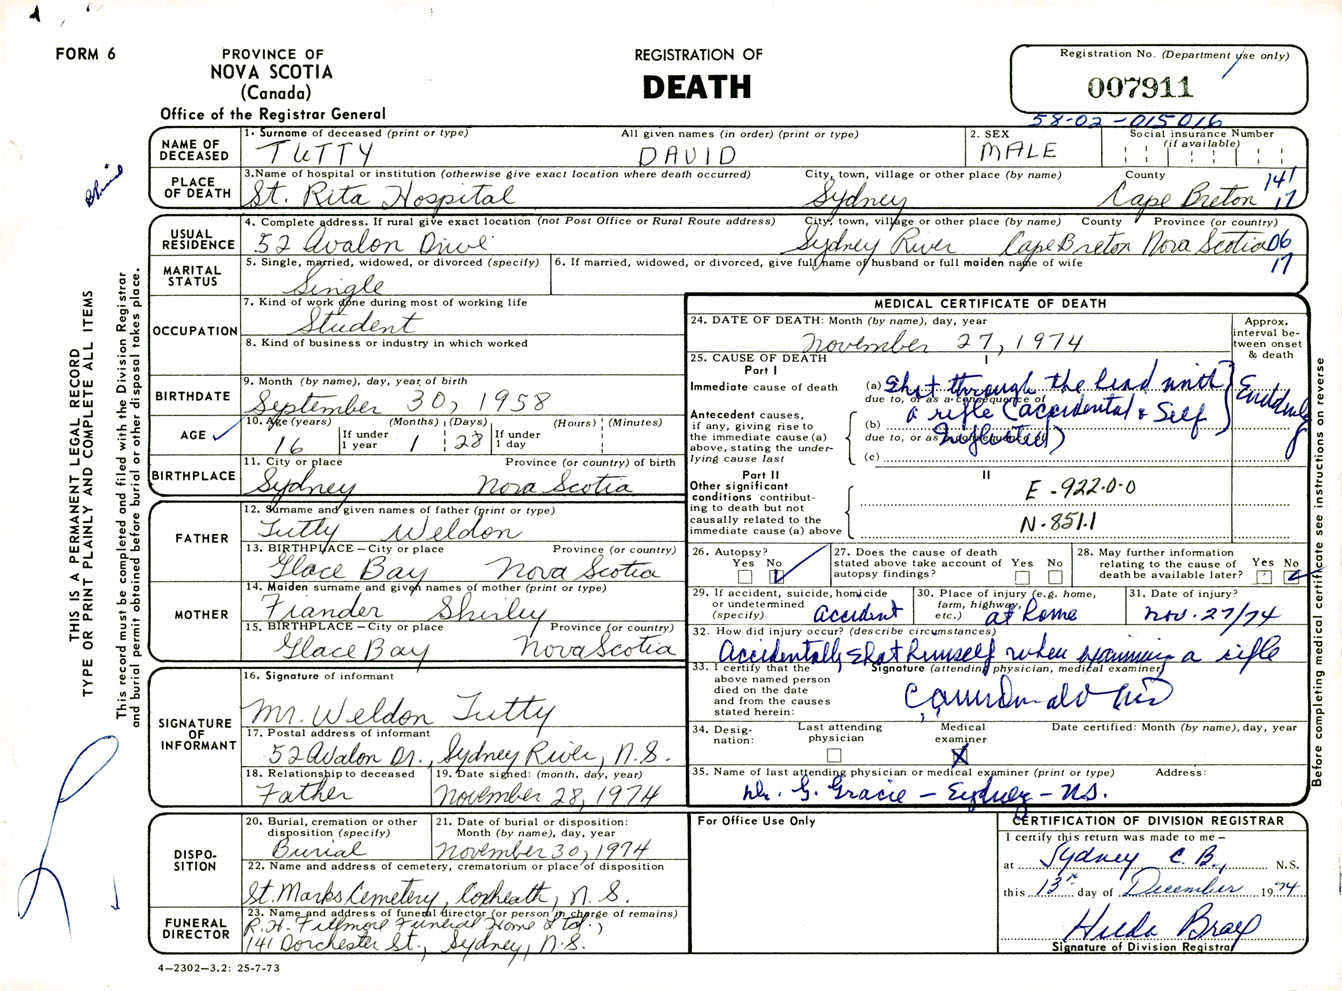 FORM 6
PROVINCE OF
NOVA SCOTIA
(Canada)
Office of the Registrar General
REGISTRATION OF
DEATH
Registration No. (Department use only)
007911
58-02-015016
NAME OF DECEASED
1. Surname of deceased (print or type) All given names (in order) (print or type)
TUTTY DAVID
2. SEX
MALE
Social insurance Number
(if available)
PLACE OF DEATH
3. Name of hospital or institution (otherwise give exact location where death occurred) City, town, village or other place (by name) County
St. Rita Hospital Sydney Cape Breton
141
17
USUAL RESIDENCE
4. Complete address. If rural give exact location (not Post Office or Rural Route address) City, town, village or other place (by name) County Province (or country)
52 Avalon Drive Sydney River Cape Breton Nova Scotia
06
17
MARITAL STATUS
5. Single, married, widowed, or divorced (specify)
Single
6. If married, widowed, or divorced, give full name of husband or full maiden name of wife
OCCUPATION
7. Kind of work done during most of working life
Student
8. Kind of business or industry in which worked
BIRTHDATE
9. Month (by name), day, year of birth
September 30, 1958
AGE
10. Age (years) (Months) (Days) (Hours) (Minutes)
16 If under 1 year 1 28 If under 1 day
BIRTHPLACE
11. City or place Province (or country) of birth
Sydney Nova Scotia
FATHER
12. Surname and given names of father (print or type)
Tutty Weldon
13. BIRTHPLACE – City or place Province (or country)
Glace Bay Nova Scotia
MOTHER
14. Maiden surname and given names of mother (print or type)
Fiander Shirley
15. BIRTHPLACE – City or place Province (or country)
Glace Bay Nova Scotia
SIGNATURE OF INFORMANT
16. Signature of informant
Mr. Weldon Tutty
17. Postal address of informant
52 Avalon Dr., Sydney River, N.S.
18. Relationship to deceased
Father
19. Date signed: (month, day, year)
November 28, 1974
DISPO-SITION
20. Burial, cremation or other disposition (specify)
Burial
21. Date of burial or disposition: Month (by name), day, year
November 30, 1974
22. Name and address of cemetery, crematorium or place of disposition
St. Marks Cemetery, Coxheath, N.S.
FUNERAL DIRECTOR
23. Name and address of funeral director (or person in charge of remains)
R.H. Fillmore Funeral Home Ltd.,
141 Dorchester St., Sydney, N.S.
4—2302—3.2: 25-7-73
MEDICAL CERTIFICATE OF DEATH
24. DATE OF DEATH: Month (by name), day, year
November 27, 1974
Approx. interval between onset & death
25. CAUSE OF DEATH
Part I
I
Immediate cause of death
(a) Shot through the head with
due to, or as a consequence of
Antecedent causes, if any, giving rise to the immediate cause (a) above, stating the underlying cause last
(b) a rifle (accidental & Self
due to, or as a consequence of
Inflicted)
(c)
Part II
II
Other significant conditions contributing to death but not causally related to the immediate cause (a) above
E-922.0-0
N-851.1
26. Autopsy?
Yes No
27. Does the cause of death stated above take account of autopsy findings?
Yes No
28. May further information relating to the cause of death be available later?
Yes No
29. If accident, suicide, homicide or undetermined (specify)
accident
30. Place of injury (e.g. home, farm, highway, etc.)
at Home
31. Date of injury?
Nov. 27/74
32. How did injury occur? (describe circumstances)
Accidentally shot himself when examining a rifle
33. I certify that the above named person died on the date and from the causes stated herein:
Signature (attending physician, medical examiner)
34. Designation:
Last attending physician
Medical examiner
X
Date certified: Month (by name), day, year
35. Name of last attending physician or medical examiner (print or type) Address:
Dr. G. Gracie – Sydney – N.S.
For Office Use Only
CERTIFICATION OF DIVISION REGISTRAR
I certify this return was made to me –
at Sydney C.B., N.S.
this 13th day of December 1974
Hilda Bray
Signature of Division Registrar
THIS IS A PERMANENT LEGAL RECORD
TYPE OR PRINT PLAINLY AND COMPLETE ALL ITEMS
This record must be completed and filed with the Division Registrar
and burial permit obtained before burial or other disposal takes place.
Before completing medical certificate see instructions on reverse